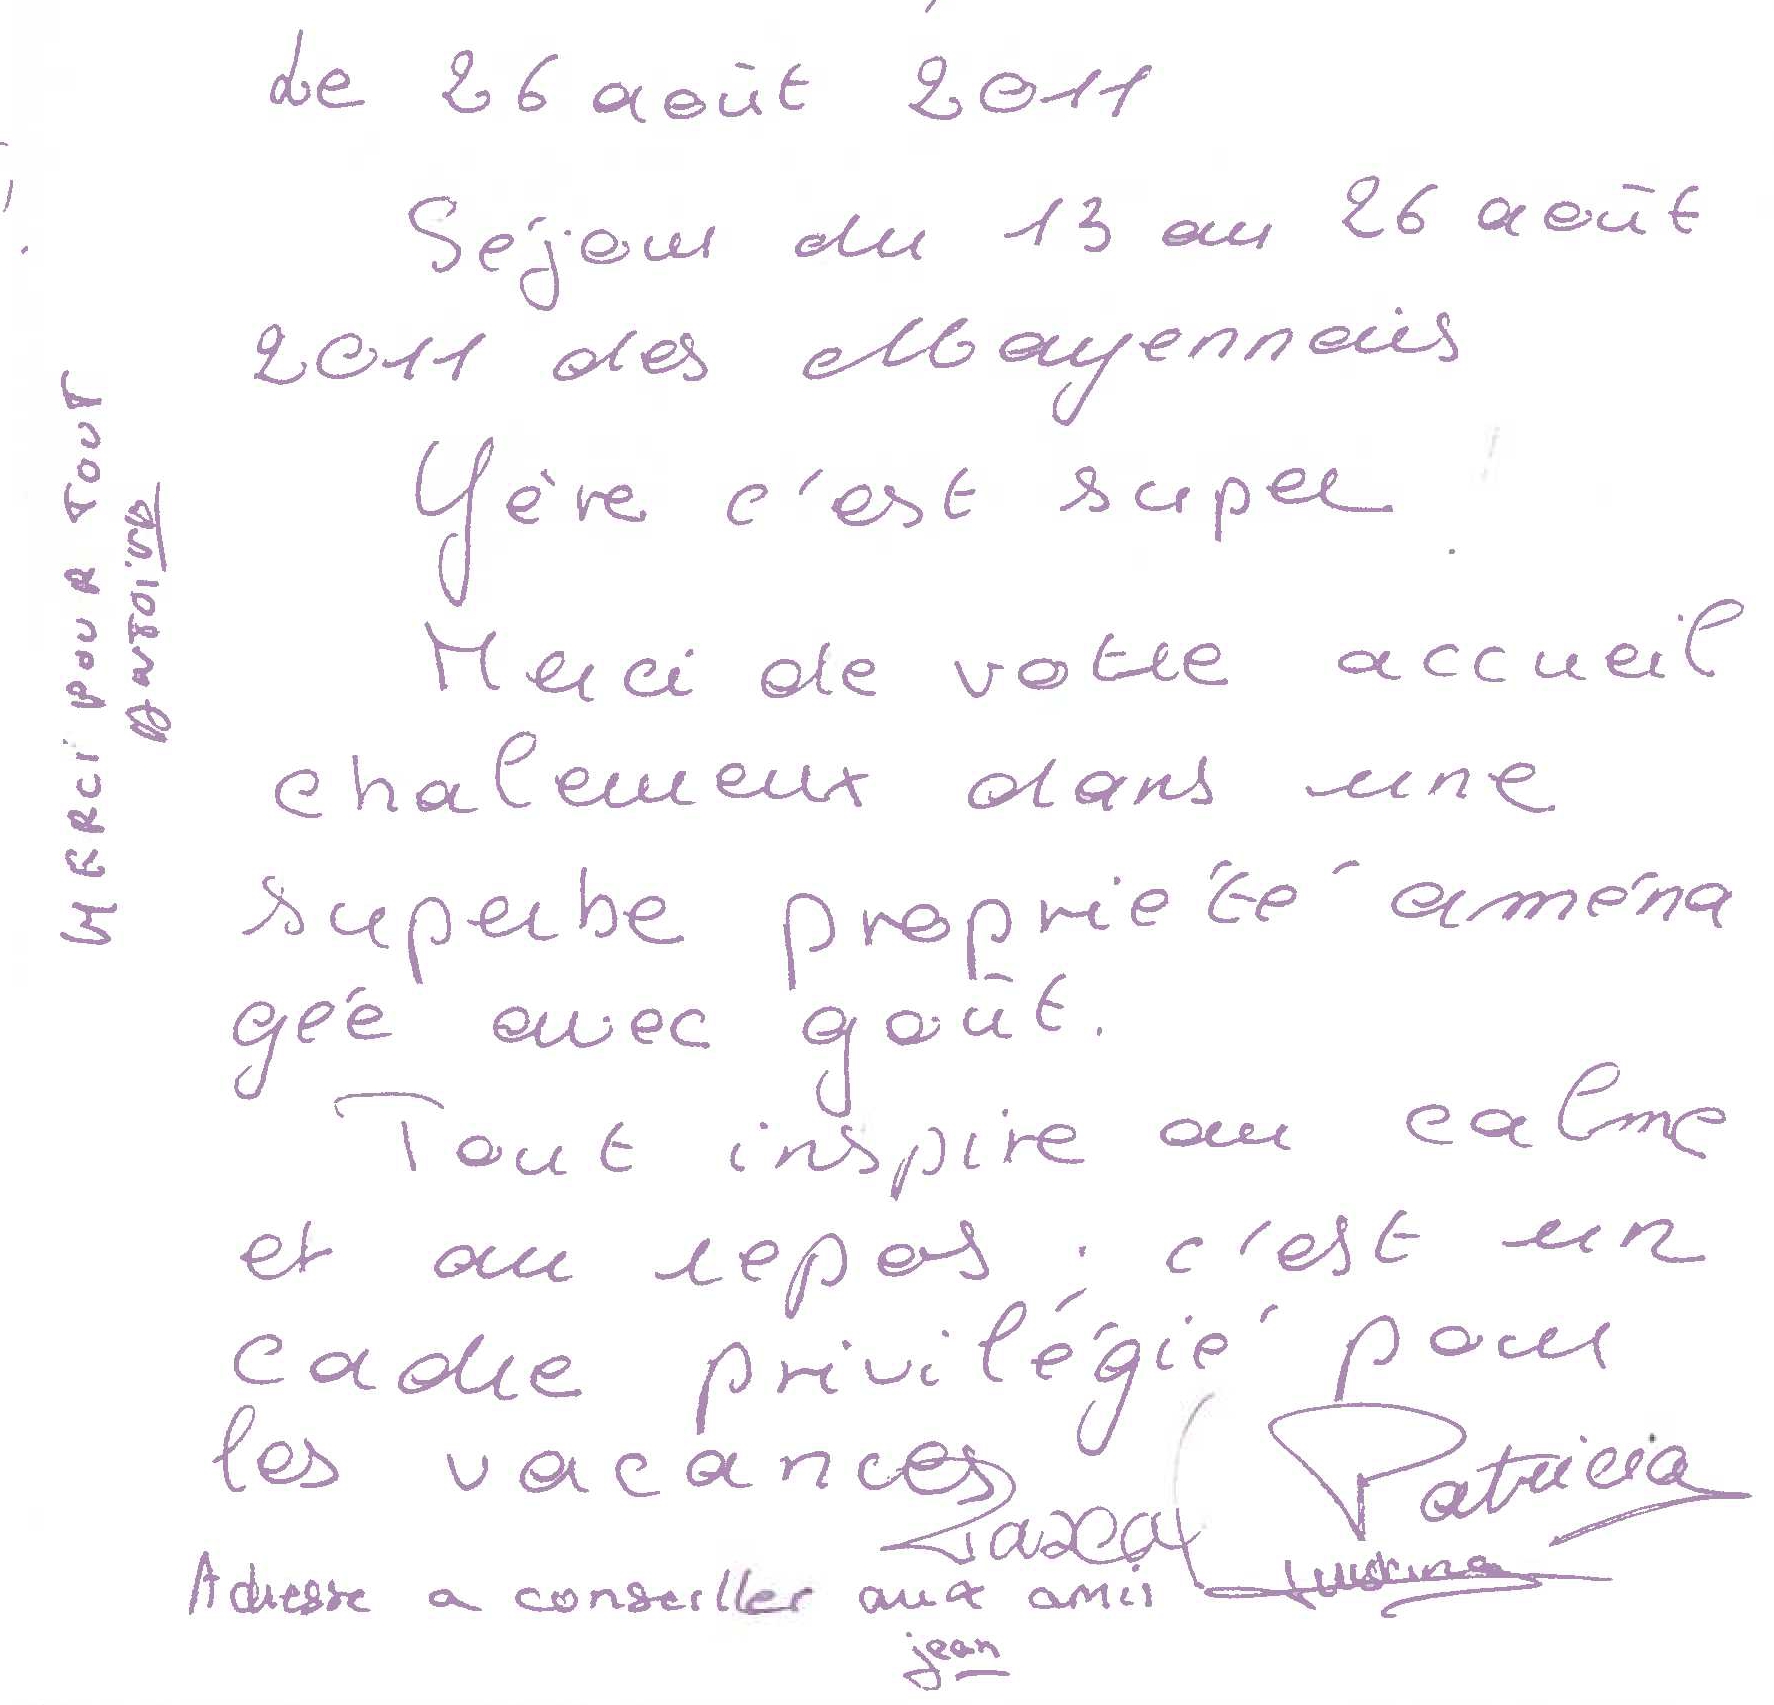 Le 26 août 2011
Séjour du 13 au 26 août
2011 des Mayennais
Yère c'est super
Merci de votre accueil
chaleureux dans une
superbe propriété aména
gée avec goût.
Tout inspire au calme
et au repos ; c'est un
cadre privilégié pour
les vacances
Patricia
Pascal
Adresse a conseiller aux amis
jean
MERCI POUR TOUT
ANTOINE